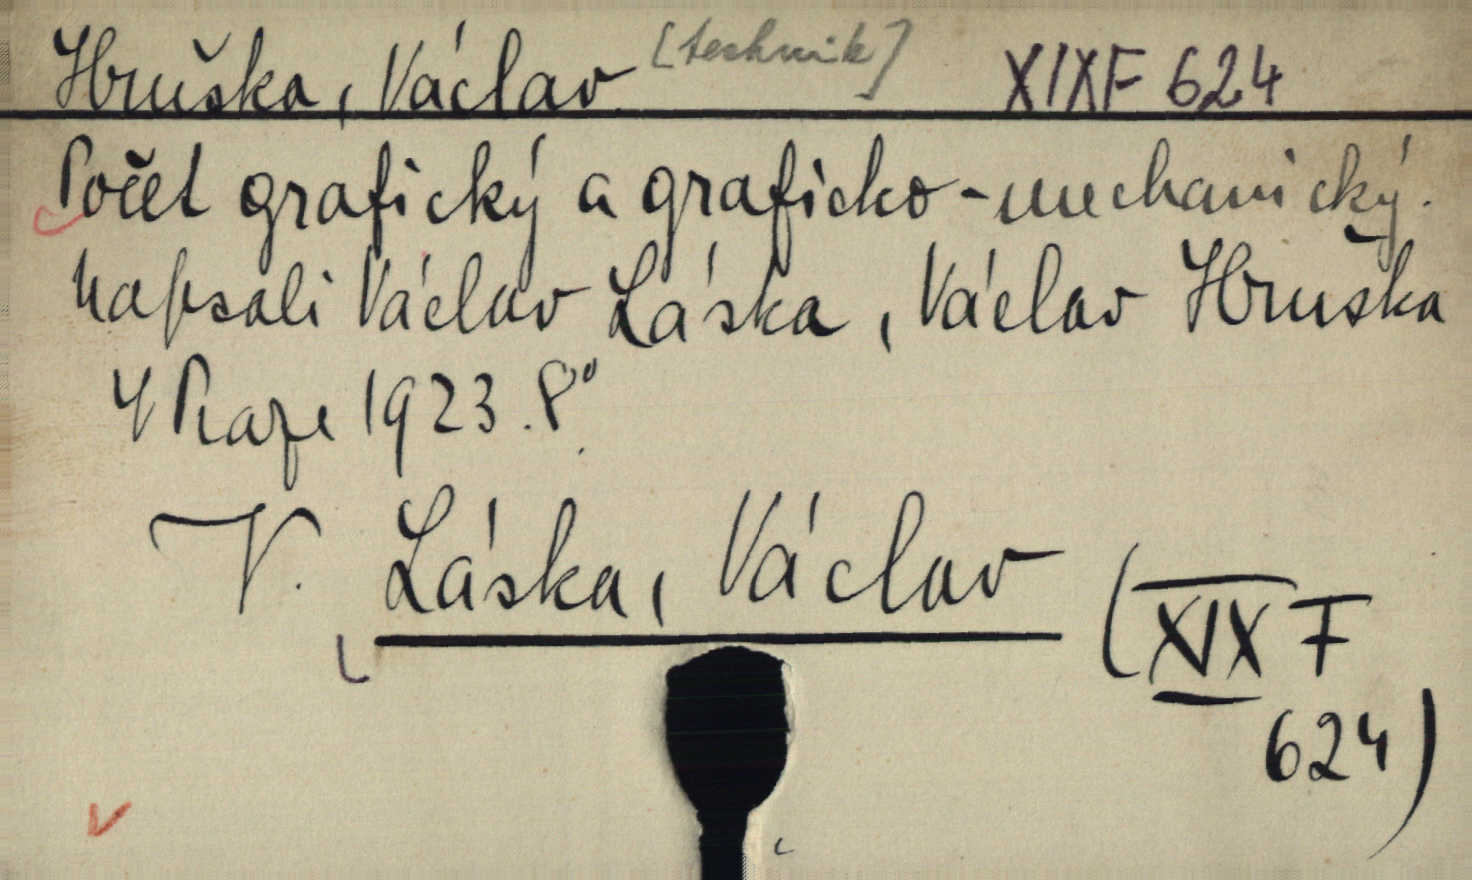 Hruška, Václav [technik] XIXF 624
Počet grafický a graficko-mechanický.
Napsali Václav Láska, Václav Hruška
V Praze 1923. 8°
V. Láska, Václav (XIX F
624)